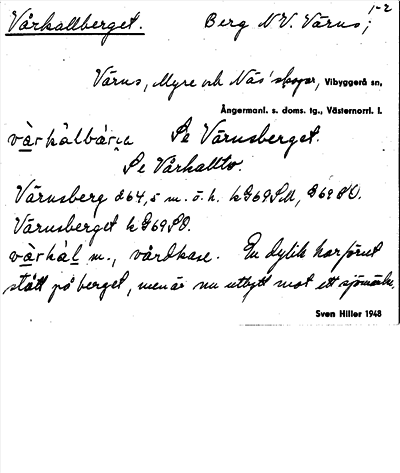 1-2
Vårkallberget. Berg N.V. Värns;
Värns, Myre och Näs' skogar, Vibyggerå sn,
Ångermanl. s. doms. tg., Västernorrl. l.
Se Värnsberget.
Se Vårkalltv.
Värnsberg 264,5 m. ö. h. k G69SM, D69SO.
Värnsberget k G69SO.
vàrkàl m., vårdkase. En dylik har förut
stått på berget, men är nu utbytt mot ett sjömärke.
Sven Hiller 1948